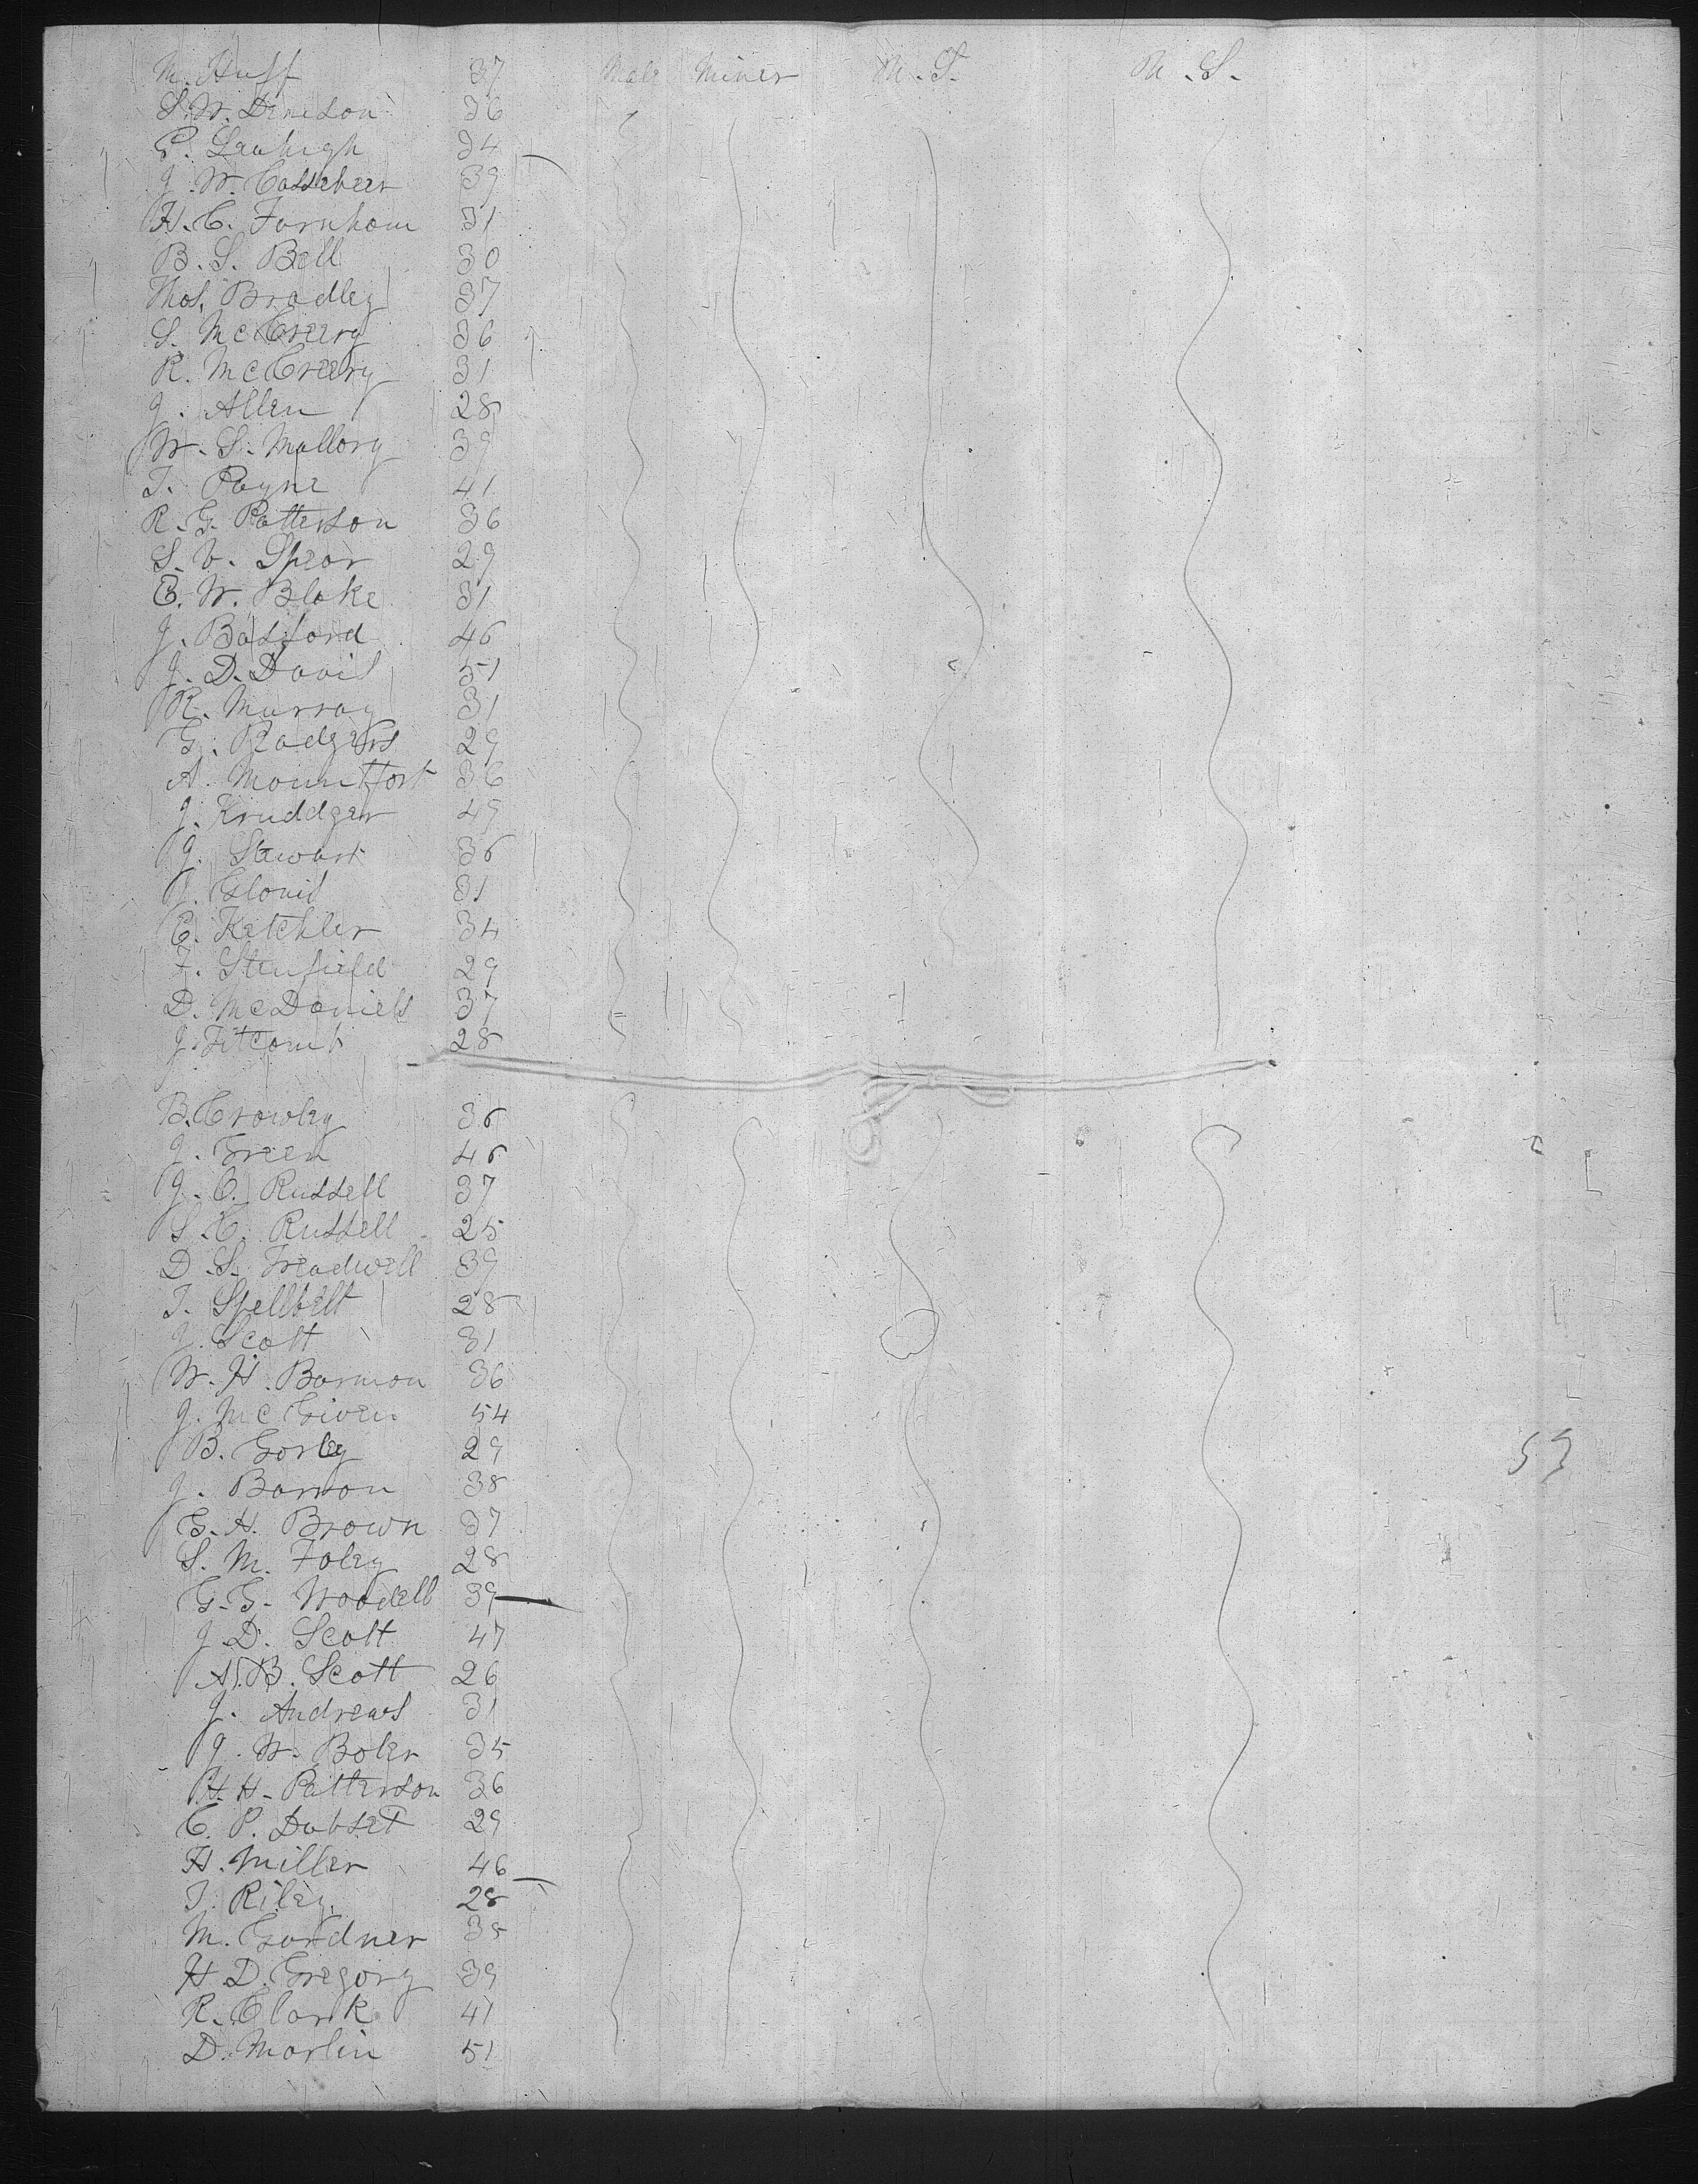 M. Huff 37 Male Miner M. S. M. S.
S. W. Denison 36
P. Lauhigh 34
J. W. Cassebeer 39
H. C. Farnham 31
B. S. Bell 30
Thos. Bradley 37
S. McCreery 36
R. McCreery 31
J. Allen 28
W. S. Mallory 39
T. Payne 41
R. G. Patterson 36
S. V. Spear 29
C. W. Blake 31
J. Basford 46
J. D. Davis 51
R. Murray 31
G. Rodgers 29
A. Mountfort 36
J. Kruddger 49
J. Stewart 36
J. Glouis 31
C. Ketchler 34
F. Stenfield 29
D. McDaniels 37
J. Titcomb 28
B. Crowley 36
J. Green 46
J. C. Russell 37
S. C. Russell 25
D. S. Treadwell 39
T. Spellbelt 28
J. Scott 31
W. H. Barmon 36
J. McGiven 54
B. Gorley 29
J. Barron 38
G. H. Brown 37
S. M. Foley 28
G. G. Woodell 39
J. D. Scott 47
A. B. Scott 26
J. Andrews 31
J. W. Boler 35
H. H. Patterson 36
C. P. Dubset 29
H. Miller 46
T. Riley 28
M. Gardner 35
H. D. Gregory 39
R. Clark 41
D. Marlin 51
53